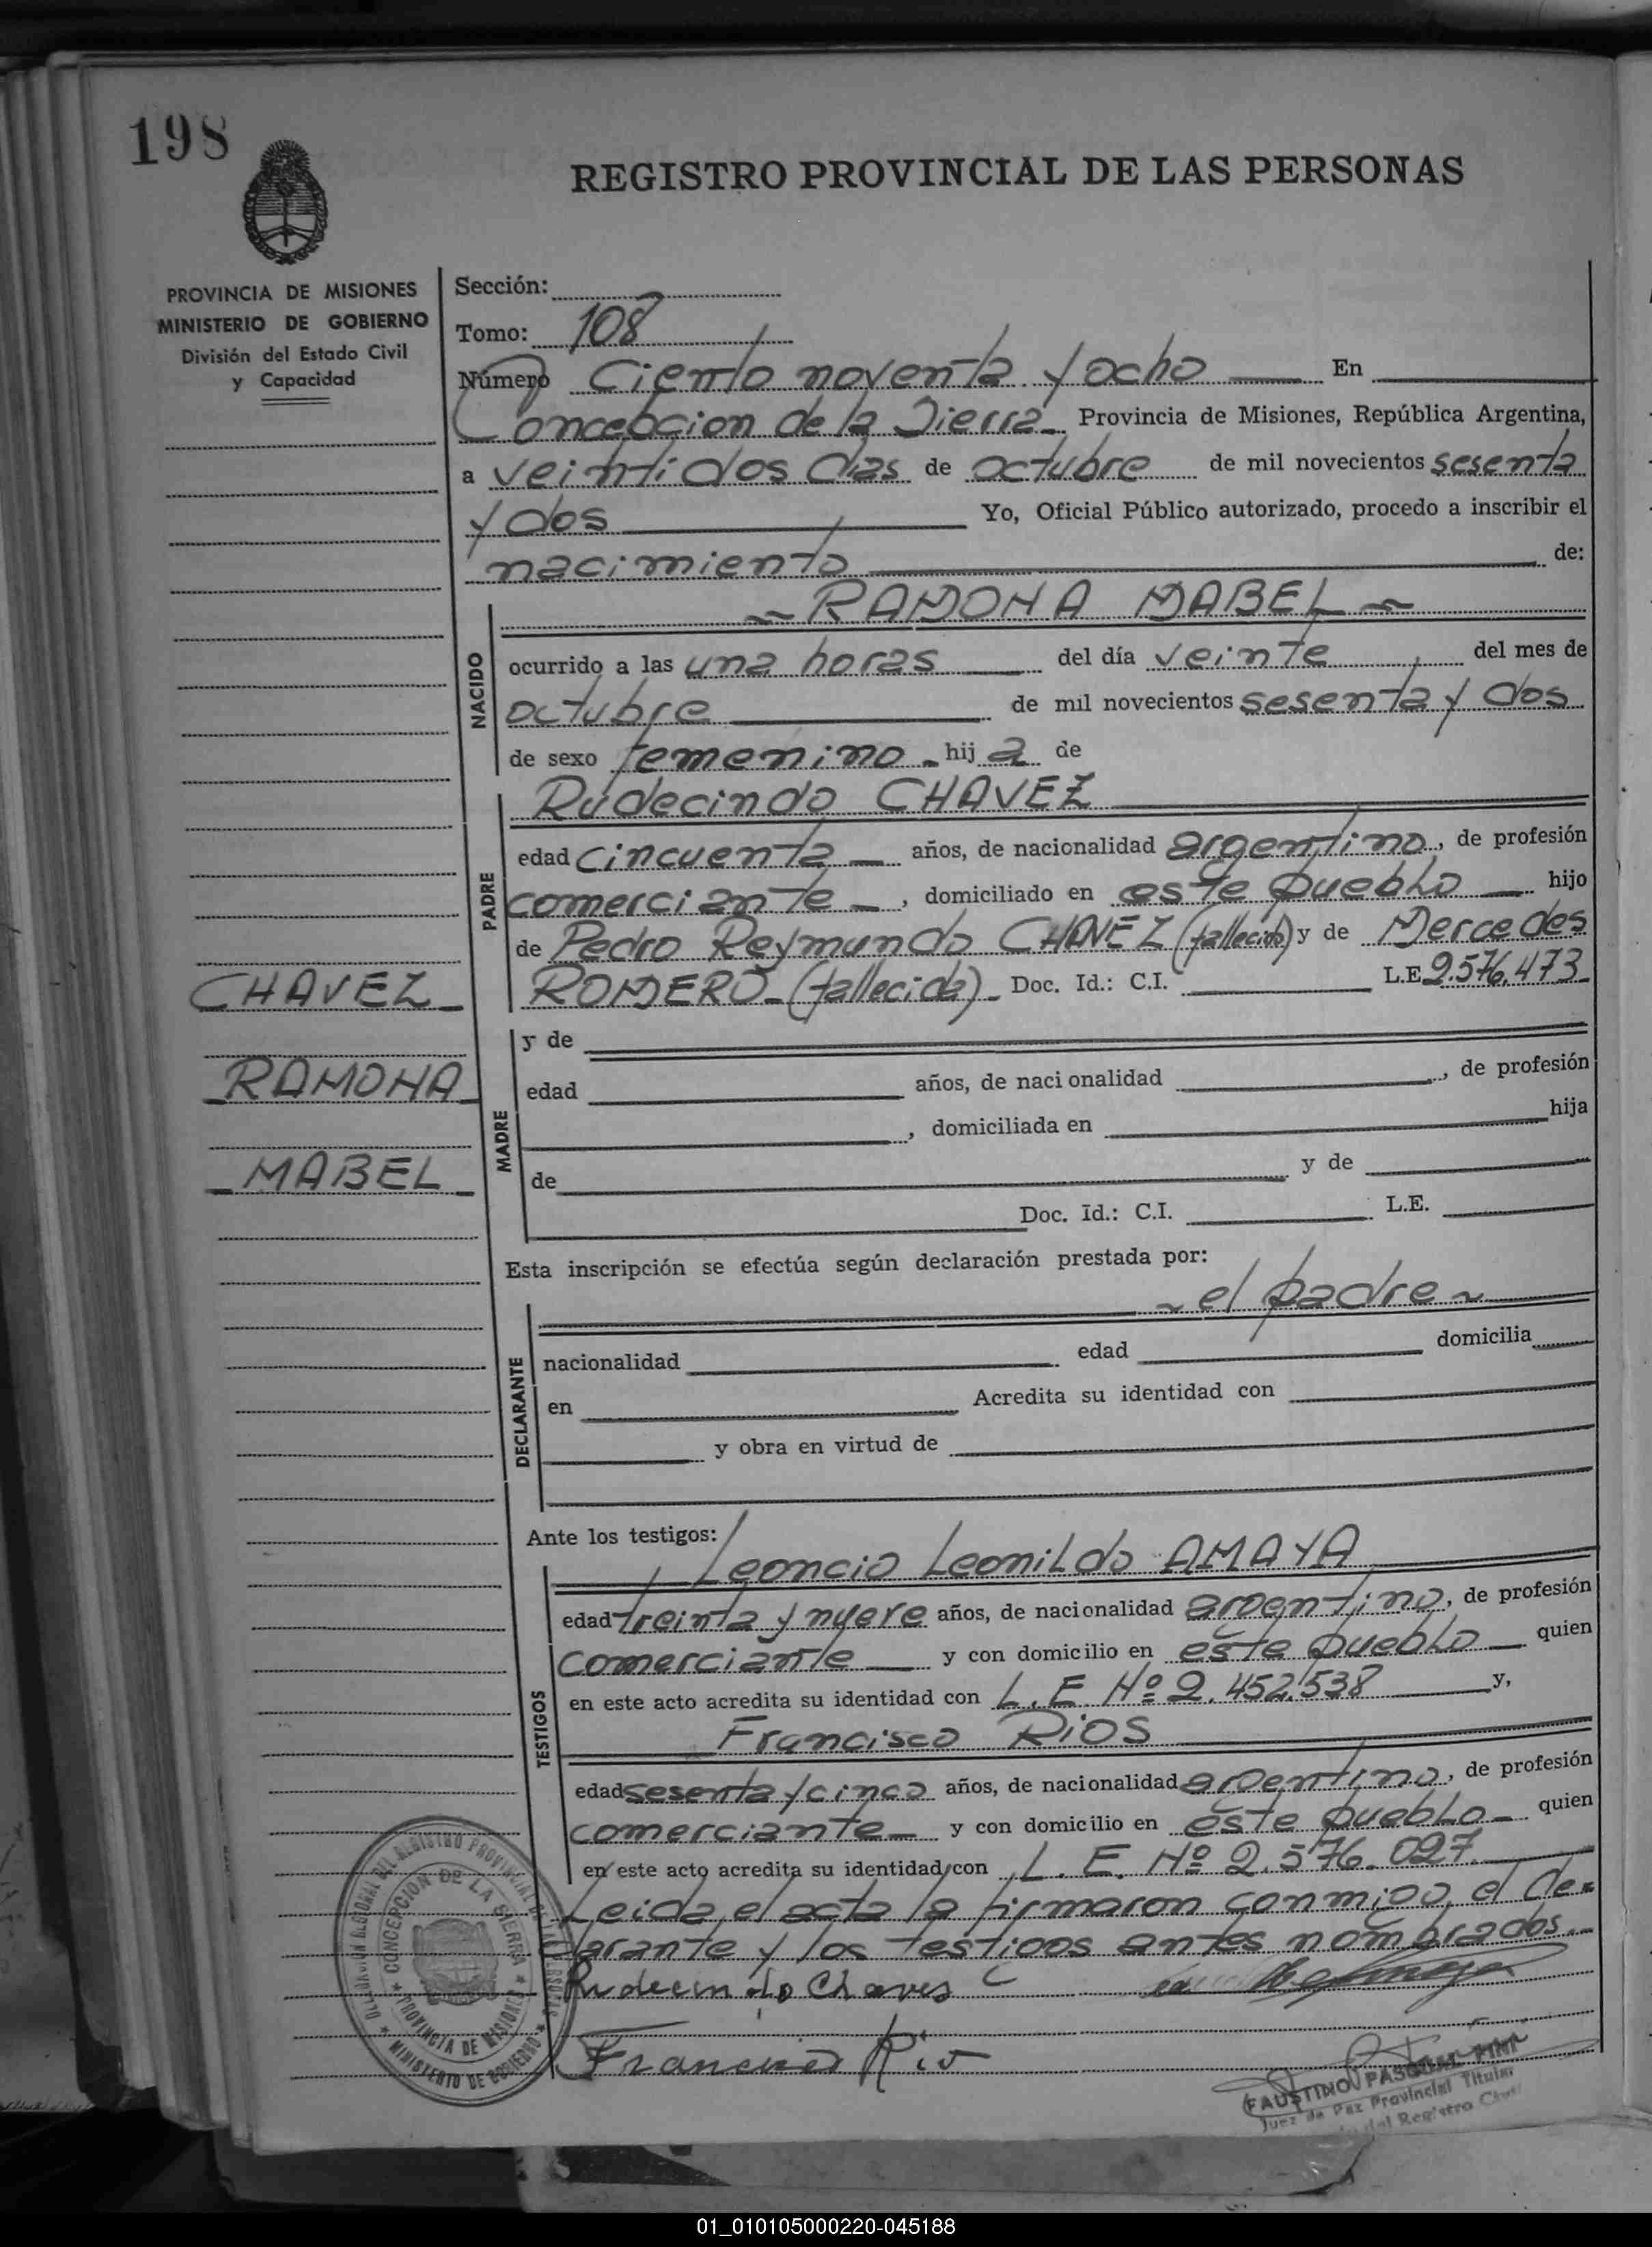 198
REGISTRO PROVINCIAL DE LAS PERSONAS
PROVINCIA DE MISIONES
MINISTERIO DE GOBIERNO
División del Estado Civil
y Capacidad
Sección:
Tomo: 108
Número Ciento noventa y ocho En
Concepcion de la Sierra Provincia de Misiones, República Argentina,
a veintidos dias de octubre de mil novecientos sesenta
y dos Yo, Oficial Público autorizado, procedo a inscribir el
nacimiento de:
RAMONA MABEL
NACIDO
ocurrido a las una horas del día veinte del mes de
octubre de mil novecientos sesenta y dos
de sexo femenino hija de
Rudecindo CHAVEZ
PADRE
edad cincuenta años, de nacionalidad argentino, de profesión
comerciante, domiciliado en este pueblo hijo
de Pedro Reymundo CHAVEZ (fallecido) y de Mercedes
ROMERO (fallecida) Doc. Id.: C.I. L.E 2.576.473
CHAVEZ
RAMONA
MABEL
MADRE
y de
edad años, de nacionalidad , de profesión
, domiciliada en hija
de y de
Doc. Id.: C.I. L.E.
Esta inscripción se efectúa según declaración prestada por:
el padre
DECLARANTE
nacionalidad edad domicilia
en Acredita su identidad con
y obra en virtud de
Ante los testigos:
Leoncio Leonildo AMAYA
TESTIGOS
edad treinta y nueve años, de nacionalidad argentino, de profesión
comerciante y con domicilio en este pueblo quien
en este acto acredita su identidad con L.E Nº 2.452.538 y,
Francisco RIOS
edad sesenta y cinco años, de nacionalidad argentino, de profesión
comerciante y con domicilio en este pueblo quien
en este acto acredita su identidad con L.E. Nº 2.576.027
Leida el acta la firmaron conmigo, el de=
clarante y los testigos antes nombrados.
Rudecindo Chaves
Francisco Rio
DELEGACIÓN REGIONAL DEL REGISTRO PROVINCIAL DE LAS PERSONAS
CONCEPCION DE LA SIERRA
PROVINCIA DE MISIONES
MINISTERIO DE GOBIERNO
FAUSTINO PASCUAL PINI
Juez de Paz Provincial Titular
del Registro Civil
01_010105000220-045188